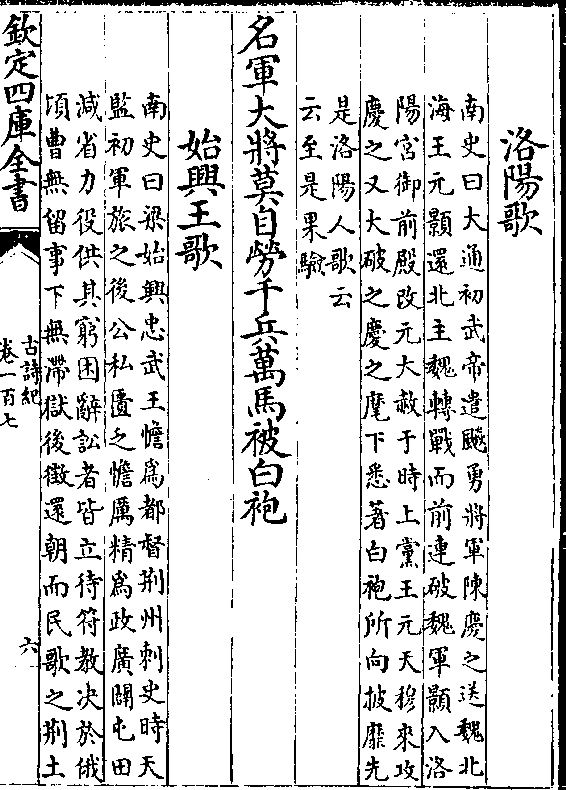 洛陽歌
南史曰大通初武帝遣飈勇將軍陳慶之送魏北
海王元顥還北主魏轉戰而前連破魏軍顥入洛
陽宮御前殿改元大赦于時上黨王元天穆來攻
慶之又大破之慶之麾下悉著白袍所向披靡先
是洛陽人歌云
云至是果驗
名軍大將莫自勞千兵萬馬被白袍
始興王歌
南史曰梁始興忠武王憺爲都督荆州刺史時天
監初軍旅之後公私匱乏憺厲精爲政廣闢屯田
減省力役供其窮困辭訟者皆立待符教决於俄
頃曹無留事下無滯獄後徵還朝而民歌之荆土
欽定四庫全書
古詩紀
卷一百七
六